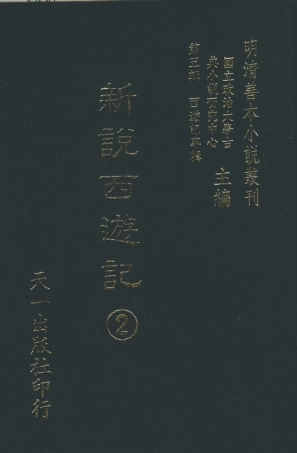 明清善本小說叢刊
國立政治大學古
典小說研究中心
主編
第五輯 西遊記專輯
新說西遊記
②
天一出版社印行